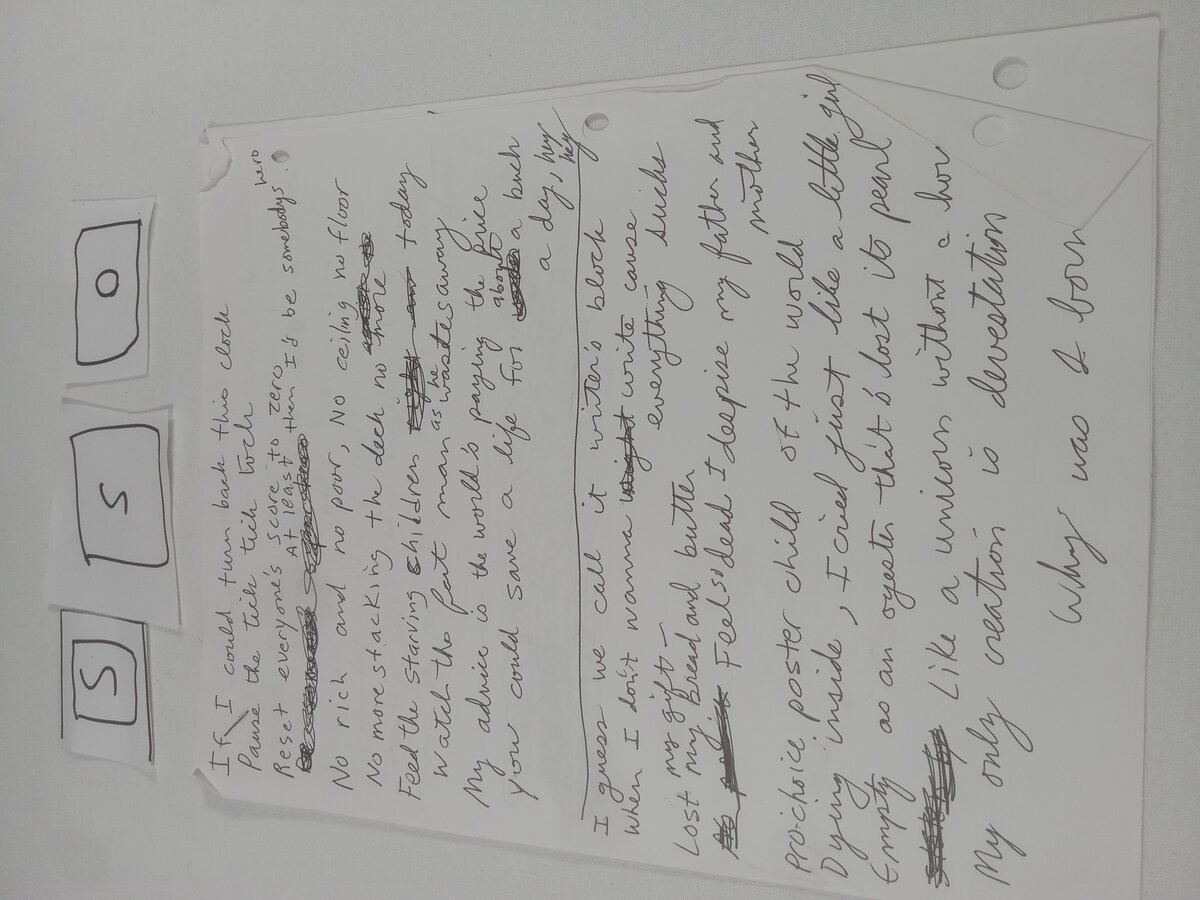 S
S
O
If I could turn back this clock
Pause the tick tick tock
Reset everyone's score to zero
At least then I'd be somebodys hero
No rich and no poor, No ceiling no floor
No more stacking the deck no more
Feed the starving children today
Watch the fat man as he wastes away
My advice is the world's paying the price
you could save a life for about a buck
a day, hey
hey
I guess we call it writer's block
When I don't wanna write cause
everything sucks
Lost my gift -
my bread and butter
Feel so dead I deepise my father and
mother
Pro-choice poster child of the world
Dying inside, I cried just like a little girl
Empty as an oyester that's lost its pearl
Like a unicorn without a horn
My only creation is devestation
Why was I born